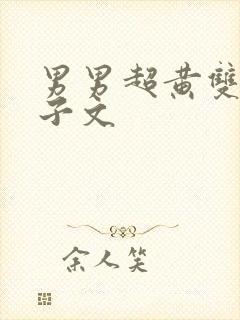 男男超黄雙
子文
余人笑